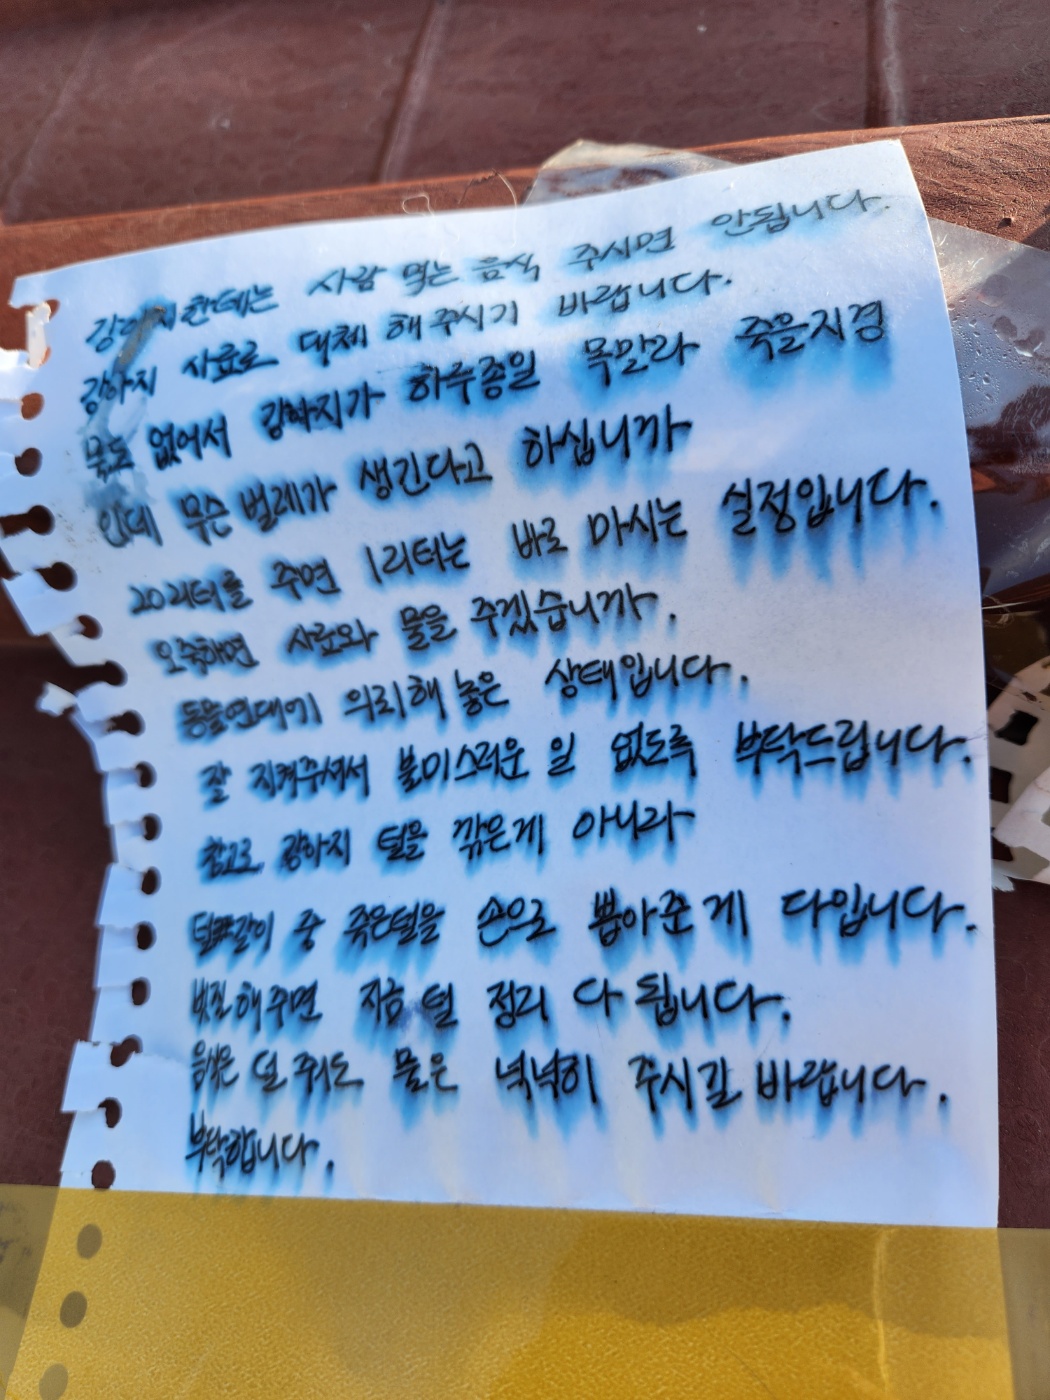 강아지한테는 사람 먹는 음식 주시면 안됩니다.
강아지 사료로 대체 해주시기 바랍니다.
물도 없어서 강아지가 하루종일 목말라 죽을지경
인데 무슨 벌레가 생긴다고 하십니까
20리터를 주면 1리터는 바로 마시는 실정입니다.
오죽하면 사료와 물을 주겠습니까.
동물연대에 의뢰해 놓은 상태입니다.
잘 지켜주셔서 불미스러운 일 없도록 부탁드립니다.
참고로 강아지 털을 깎은게 아니라
털갈이 중 죽은털을 손으로 뽑아준게 다입니다.
빗질해주면 지금 털 정리 다 됩니다.
음식은 덜 줘도 물은 넉넉히 주시길 바랍니다.
부탁합니다.